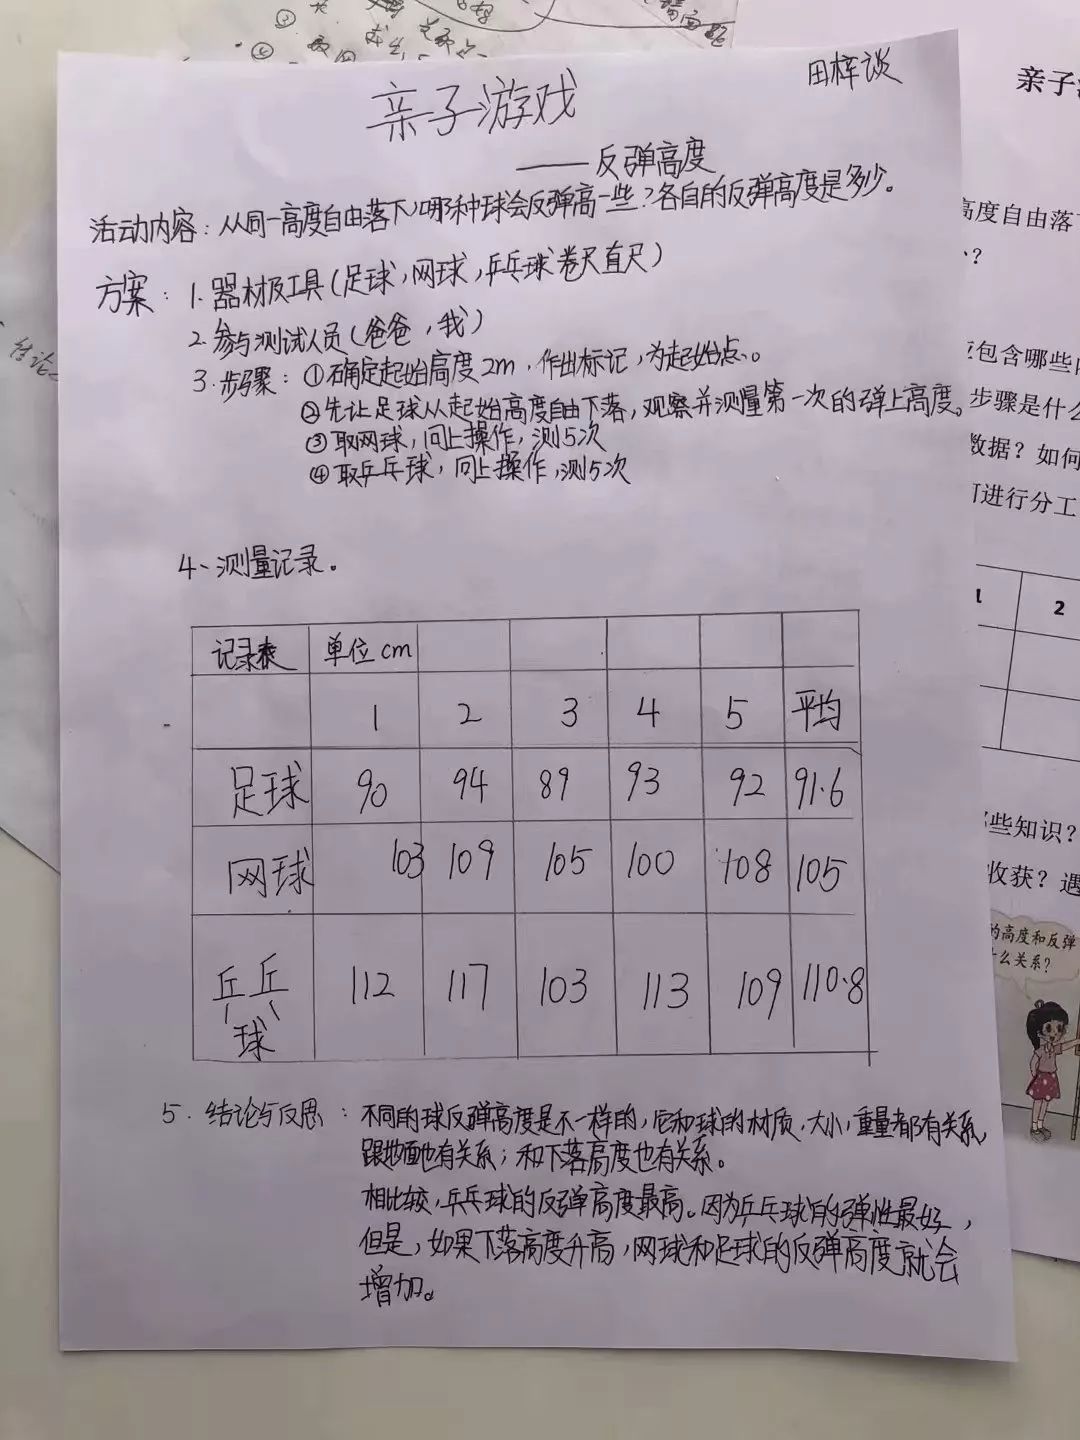 田梓谈
亲子游戏
——反弹高度
活动内容：从同一高度自由落下，哪种球会反弹高一些？各自的反弹高度是多少。
方案：1. 器材及工具（足球，网球，乒乓球卷尺直尺）
2. 参与测试人员（爸爸，我）
3. 步骤：①确定起始高度2m，作出标记，为起始点。
②先让足球从起始高度自由下落，观察并测量第一次的弹上高度。
③取网球，同上操作，测5次
④取乒乓球，同上操作，测5次
4、测量记录。
记录表 单位cm
1 2 3 4 5 平均
足球 90 94 89 93 92 91.6
网球 103 109 105 100 108 105
乒乓球 112 117 103 113 109 110.8
5. 结论与反思：不同的球反弹高度是不一样的，它和球的材质，大小，重量都有关系，
跟地面也有关系；和下落高度也有关系。
相比较，乒乓球的反弹高度最高。因为乒乓球的弹性最好，
但是，如果下落高度升高，网球和足球的反弹高度就会
增加。
亲子
高度自由落
？
包含哪些
步骤是什么
数据？如何
进行分工
1 2
些知识？
收获？遇
的高度和反弹
什么关系？
结论